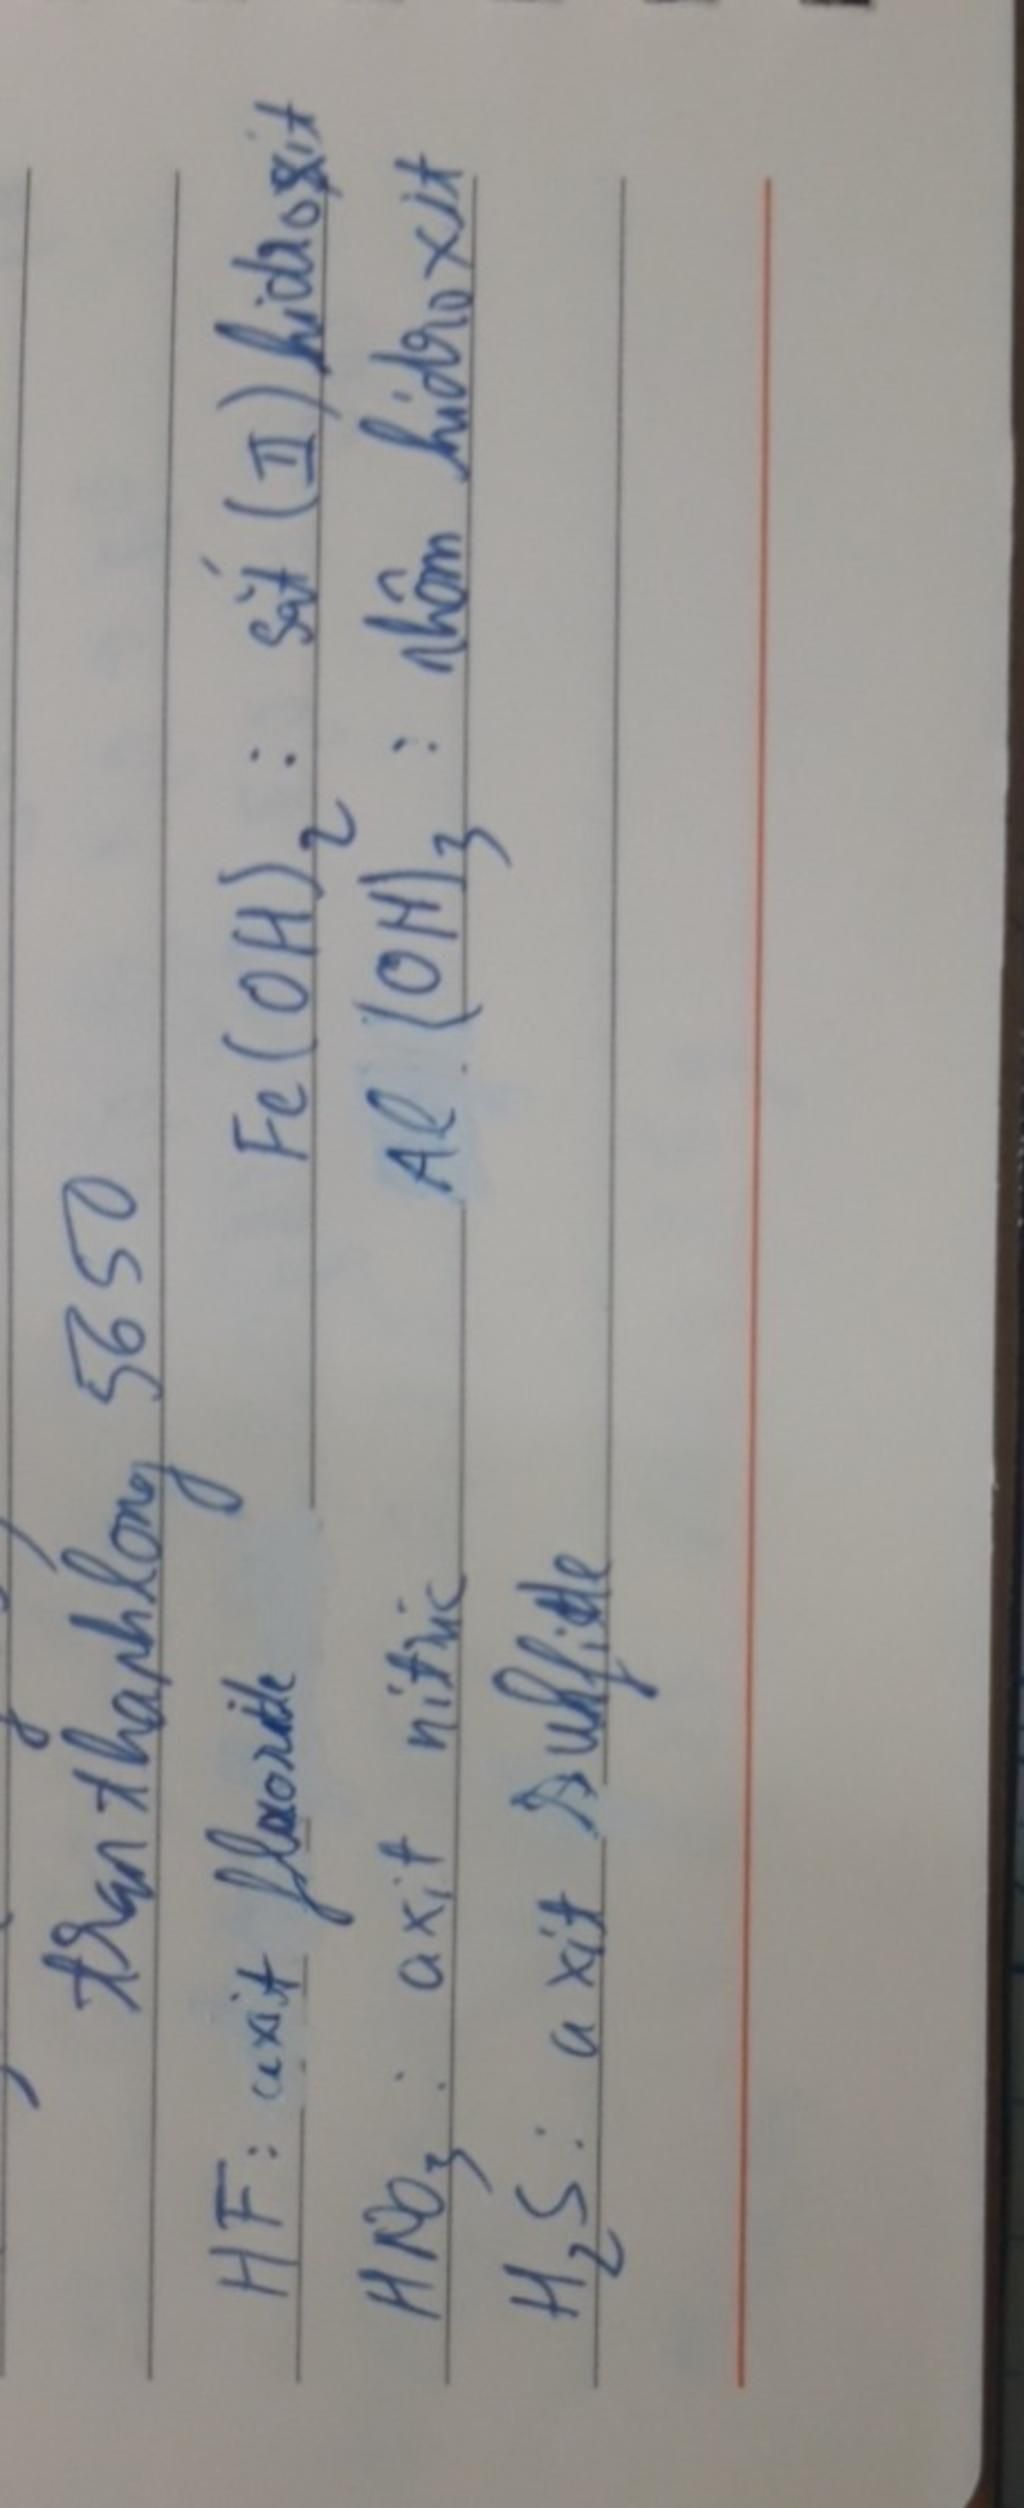 tranthanhlong 5650
HF: axit fluoride Fe(OH)2 : sắt (II) hidroxit
HNO3 : axit nitric Al (OH)3 : nhôm hidroxit
H2S : axit sulfide